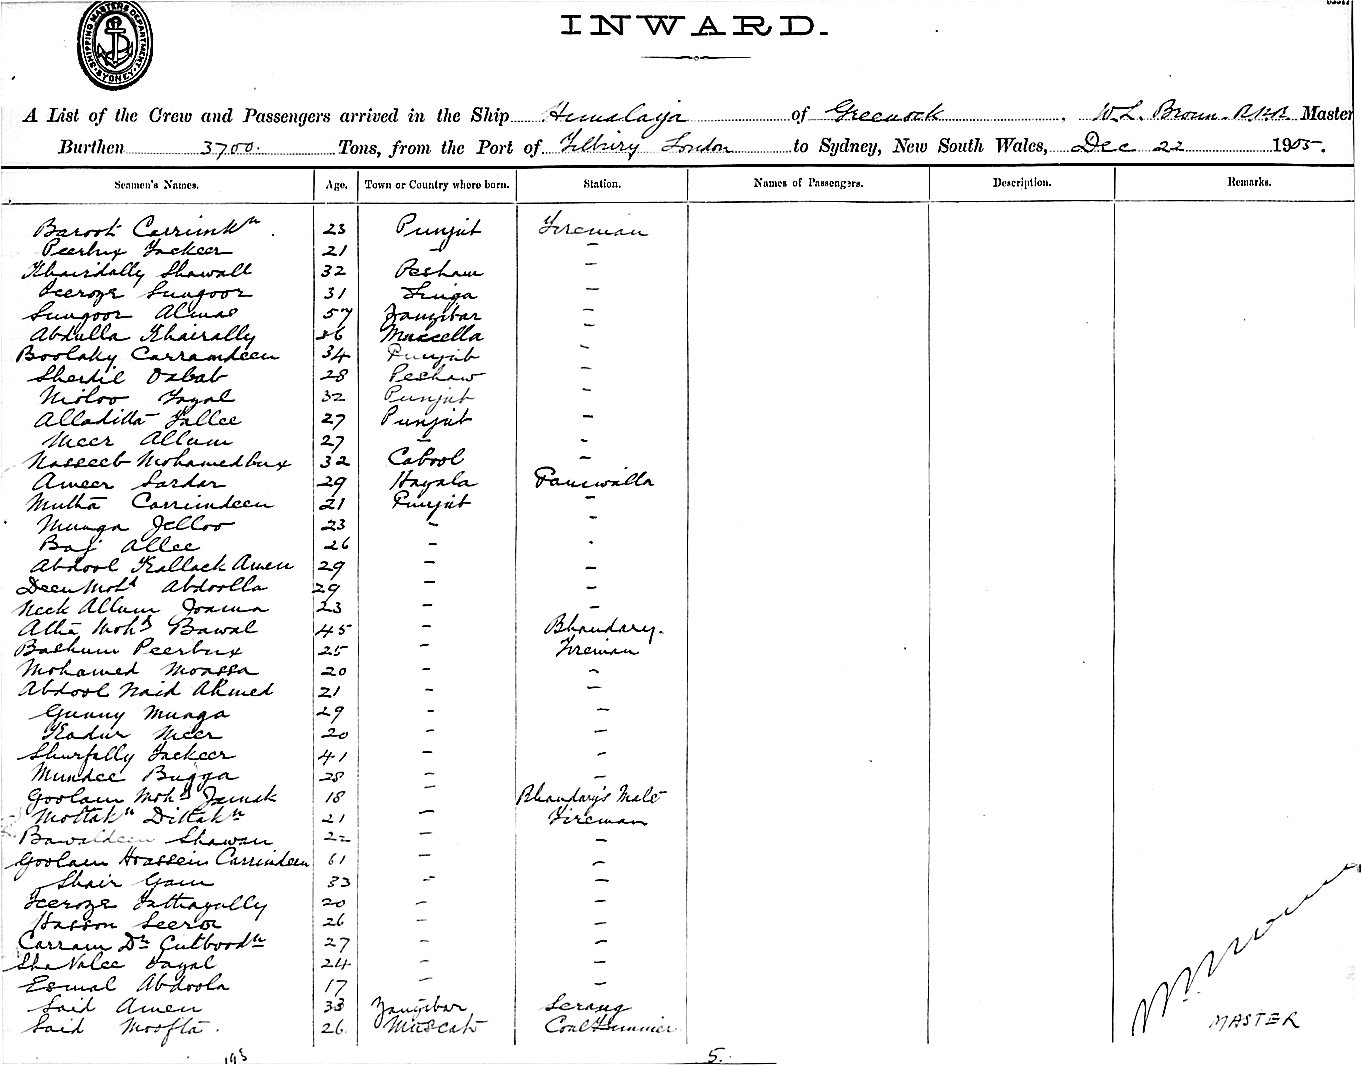 SHIPPING MASTERS DEPARTMENT. SYDNEY
INWARD.
A List of the Crew and Passengers arrived in the Ship Himalaya of Greenock, W.L. Broun. R.N.R. Master
Burthen 3700. Tons, from the Port of Tilbury London to Sydney, New South Wales, Dec 22 1905.
Seamen's Names. Age. Town or Country where born. Station. Names of Passengers. Description. Remarks.
Barook Carrimkn. 23 Punjab Fireman
Peerbux Fackeer 21 – –
Khairdally Shawall 32 Pesham –
Feeroze Sungoor 31 Linga –
Sungoor Almas 57 Zanzibar –
Abdulla Khairally 36 Muscella –
Boolaky Carramdeen 34 Punjab –
Sherdil Osbab 28 Peshaw –
Nioloo Fazal 32 Punjab –
Alladitta Fallee 27 Punjab –
Meer Allum 27 – –
Nasseeb Mohamedbux 32 Cabool –
Ameer Sardar 29 Hazala Paniwalla
Mutha Carrimdeen 21 Punjab –
Munga Jelloo 23 – –
Baj Allee 26 – -
Abdool Kallack Amen 29 – –
Deen Mohd Abdoolla 29 – –
Neck Allum Jooma 23 – –
Atta Mohd Bawal 45 – Bhandary.
Bashum Peerbux 25 – Fireman
Mohamed Moassa 20 – –
Abdool Naid Ahmed 21 – –
Gunny Munga 29 – –
Kadur Meer 20 – –
Shurfally Fackeer 41 – –
Mundee Bugga 28 – –
Goolam Mohd Jamak 18 – Bhandary's Mate
Mottakn Dittakn 21 – Fireman
Bawaldeen Shawan 22 –
Goolam Hoassein Carrimdeen 61 – –
Shair Gam 33 – –
Feeroze Fattagully 20 – –
Hasson Seeroo 26 – –
Carram Dn Cutboodn 27 – –
Sha Valee Fazal 24 – –
Esmal Abdoola 17 – –
Said Amen 33 Zanzibar Serang
Said Moofta. 26. Muscat Coal Trimmer
MASTER
195 5.